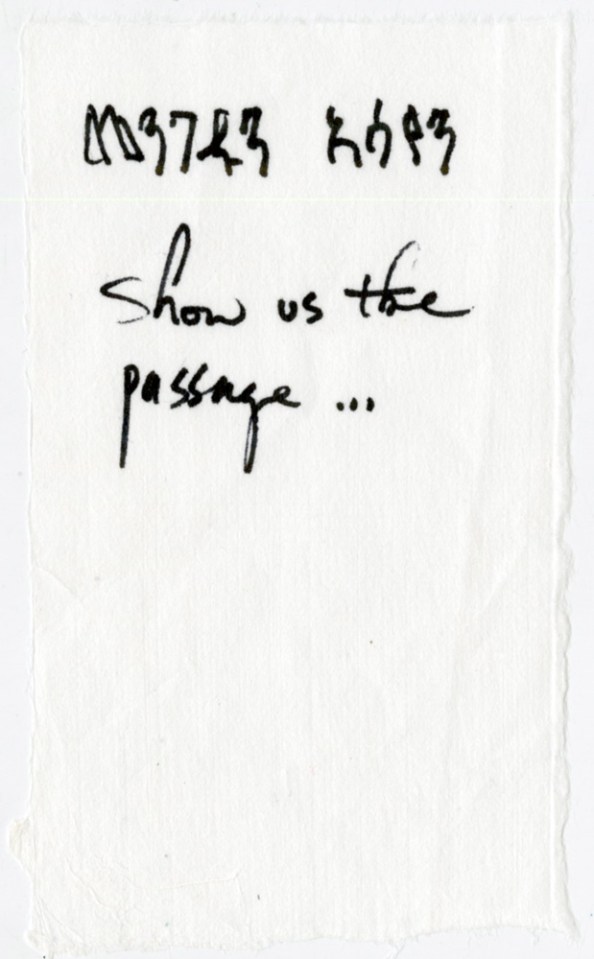 መንገዱን አሳየን
Show us the
passage ...